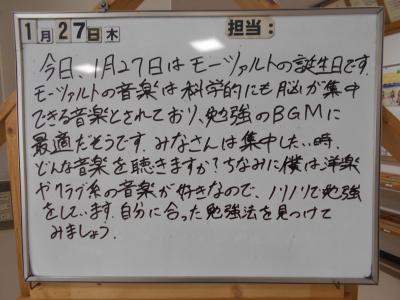 1月27日木 担当:
今日、1月27日はモーツァルトの誕生日です。
モーツァルトの音楽は科学的にも脳が集中
できる音楽とされており、勉強のBGMに
最適だそうです。みなさんは集中したい時、
どんな音楽を聴きますか?ちなみに僕は洋楽
やクラブ系の音楽が好きなので、ノリノリで勉強
をしています。自分に合った勉強法を見つけて
みましょう。